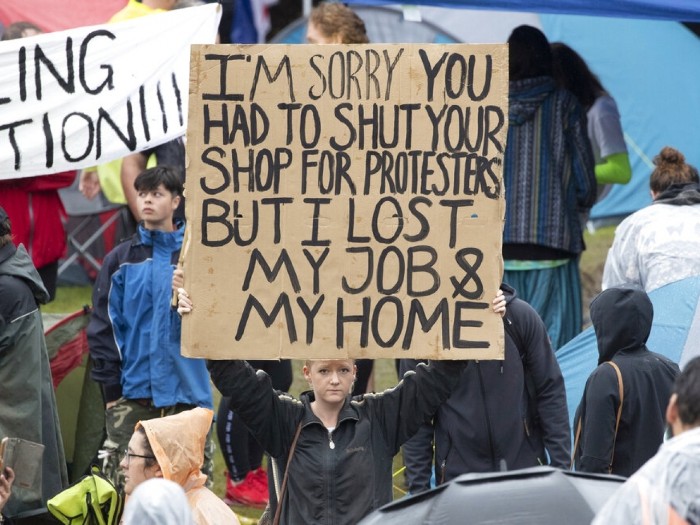 LING
TION!!!
I'M SORRY YOU
HAD TO SHUT YOUR
SHOP FOR PROTESTERS
BUT I LOST
MY JOB &
MY HOME